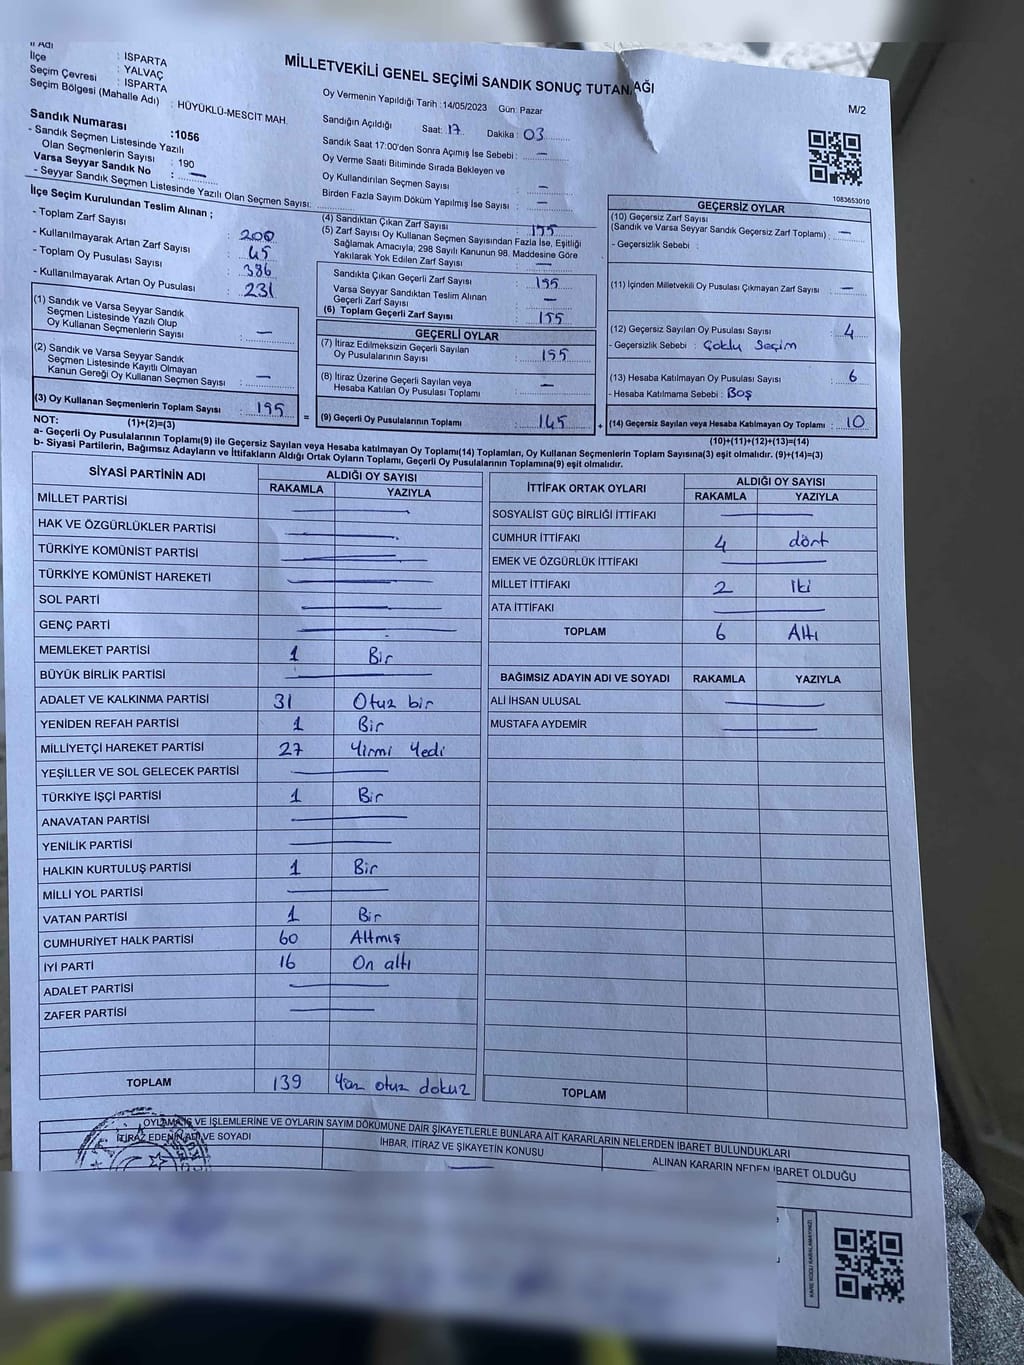 İl Adı
İlçe
Seçim Çevresi
Seçim Bölgesi (Mahalle Adı)
: ISPARTA
: YALVAÇ
: ISPARTA
: HÜYÜKLÜ-MESCİT MAH.
MİLLETVEKİLİ GENEL SEÇİMİ SANDIK SONUÇ TUTANAĞI
M/2
Oy Vermenin Yapıldığı Tarih :14/05/2023 Gün: Pazar
Sandığın Açıldığı Saat: 17 Dakika : 03
Sandık Saat 17.00'den Sonra Açımış İse Sebebi : —
Oy Verme Saati Bitiminde Sırada Bekleyen ve
Oy Kullandırılan Seçmen Sayısı : —
Birden Fazla Sayım Döküm Yapılmış İse Sayısı : —
Sandık Numarası :1056
- Sandık Seçmen Listesinde Yazılı
Olan Seçmenlerin Sayısı : 190
Varsa Seyyar Sandık No : —
- Seyyar Sandık Seçmen Listesinde Yazılı Olan Seçmen Sayısı:
1083653010
İlçe Seçim Kurulundan Teslim Alınan ;
- Toplam Zarf Sayısı : 200
- Kullanılmayarak Artan Zarf Sayısı : 45
- Toplam Oy Pusulası Sayısı : 386
- Kullanılmayarak Artan Oy Pusulası : 231
(1) Sandık ve Varsa Seyyar Sandık
Seçmen Listesinde Yazılı Olup
Oy Kullanan Seçmenlerin Sayısı : —
(2) Sandık ve Varsa Seyyar Sandık
Seçmen Listesinde Kayıtlı Olmayan
Kanun Gereği Oy Kullanan Seçmen Sayısı : —
(3) Oy Kullanan Seçmenlerin Toplam Sayısı : 155
(1)+(2)=(3)
(4) Sandıktan Çıkan Zarf Sayısı : 155
(5) Zarf Sayısı Oy Kullanan Seçmen Sayısından Fazla İse, Eşitliği
Sağlamak Amacıyla; 298 Sayılı Kanunun 98. Maddesine Göre
Yakılarak Yok Edilen Zarf Sayısı : —
Sandıkta Çıkan Geçerli Zarf Sayısı : 155
Varsa Seyyar Sandıktan Teslim Alınan
Geçerli Zarf Sayısı : —
(6) Toplam Geçerli Zarf Sayısı : 155
GEÇERLİ OYLAR
(7) İtiraz Edilmeksizin Geçerli Sayılan
Oy Pusulalarının Sayısı : 155
(8) İtiraz Üzerine Geçerli Sayılan veya
Hesaba Katılan Oy Pusulası Toplamı : —
= (9) Geçerli Oy Pusulalarının Toplamı : 145
GEÇERSİZ OYLAR
(10) Geçersiz Zarf Sayısı
(Sandık ve Varsa Seyyar Sandık Geçersiz Zarf Toplamı) : —
- Geçersizlik Sebebi :
(11) İçinden Milletvekili Oy Pusulası Çıkmayan Zarf Sayısı : —
(12) Geçersiz Sayılan Oy Pusulası Sayısı : 4
- Geçersizlik Sebebi : Çoklu Seçim
(13) Hesaba Katılmayan Oy Pusulası Sayısı : 6
- Hesaba Katılmama Sebebi : Boş
+ (14) Geçersiz Sayılan veya Hesaba Katılmayan Oy Toplamı : 10
(10)+(11)+(12)+(13)=(14)
NOT:
a- Geçerli Oy Pusulalarının Toplamı(9) ile Geçersiz Sayılan veya Hesaba katılmayan Oy Toplamı(14) Toplamları, Oy Kullanan Seçmenlerin Toplam Sayısına(3) eşit olmalıdır. (9)+(14)=(3)
b- Siyasi Partilerin, Bağımsız Adayların ve İttifakların Aldığı Ortak Oyların Toplamı, Geçerli Oy Pusulalarının Toplamına(9) eşit olmalıdır.
SİYASİ PARTİNİN ADI ALDIĞI OY SAYISI
RAKAMLA YAZIYLA
MİLLET PARTİSİ —
HAK VE ÖZGÜRLÜKLER PARTİSİ —
TÜRKİYE KOMÜNİST PARTİSİ —
TÜRKİYE KOMÜNİST HAREKETİ —
SOL PARTİ —
GENÇ PARTİ —
MEMLEKET PARTİSİ 1 Bir
BÜYÜK BİRLİK PARTİSİ —
ADALET VE KALKINMA PARTİSİ 31 Otuz bir
YENİDEN REFAH PARTİSİ 1 Bir
MİLLİYETÇİ HAREKET PARTİSİ 27 Yirmi Yedi
YEŞİLLER VE SOL GELECEK PARTİSİ —
TÜRKİYE İŞÇİ PARTİSİ 1 Bir
ANAVATAN PARTİSİ —
YENİLİK PARTİSİ —
HALKIN KURTULUŞ PARTİSİ 1 Bir
MİLLİ YOL PARTİSİ —
VATAN PARTİSİ 1 Bir
CUMHURİYET HALK PARTİSİ 60 Altmış
İYİ PARTİ 16 On altı
ADALET PARTİSİ —
ZAFER PARTİSİ —
TOPLAM 139 Yüz otuz dokuz
İTTİFAK ORTAK OYLARI ALDIĞI OY SAYISI
RAKAMLA YAZIYLA
SOSYALİST GÜÇ BİRLİĞİ İTTİFAKI —
CUMHUR İTTİFAKI 4 dört
EMEK VE ÖZGÜRLÜK İTTİFAKI —
MİLLET İTTİFAKI 2 İki
ATA İTTİFAKI —
TOPLAM 6 Altı
BAĞIMSIZ ADAYIN ADI VE SOYADI RAKAMLA YAZIYLA
ALİ İHSAN ULUSAL —
MUSTAFA AYDEMİR —
TOPLAM
VE İŞLEMLERİNE VE OYLARIN SAYIM DÖKÜMÜNE DAİR ŞİKAYETLERLE BUNLARA AİT KARARLARIN NELERDEN İBARET BULUNDUKLARI
İTİRAZ EDENİN ADI VE SOYADI
İHBAR, İTİRAZ VE ŞİKAYETİN KONUSU
ALINAN KARARIN NEDEN İBARET OLDUĞU
KARE KODU KARALAMAYINIZ!